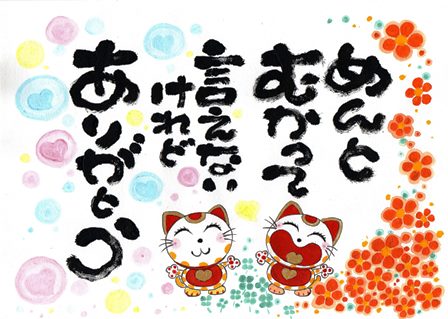 めんと
むかって
言えない
けれど
ありがとう